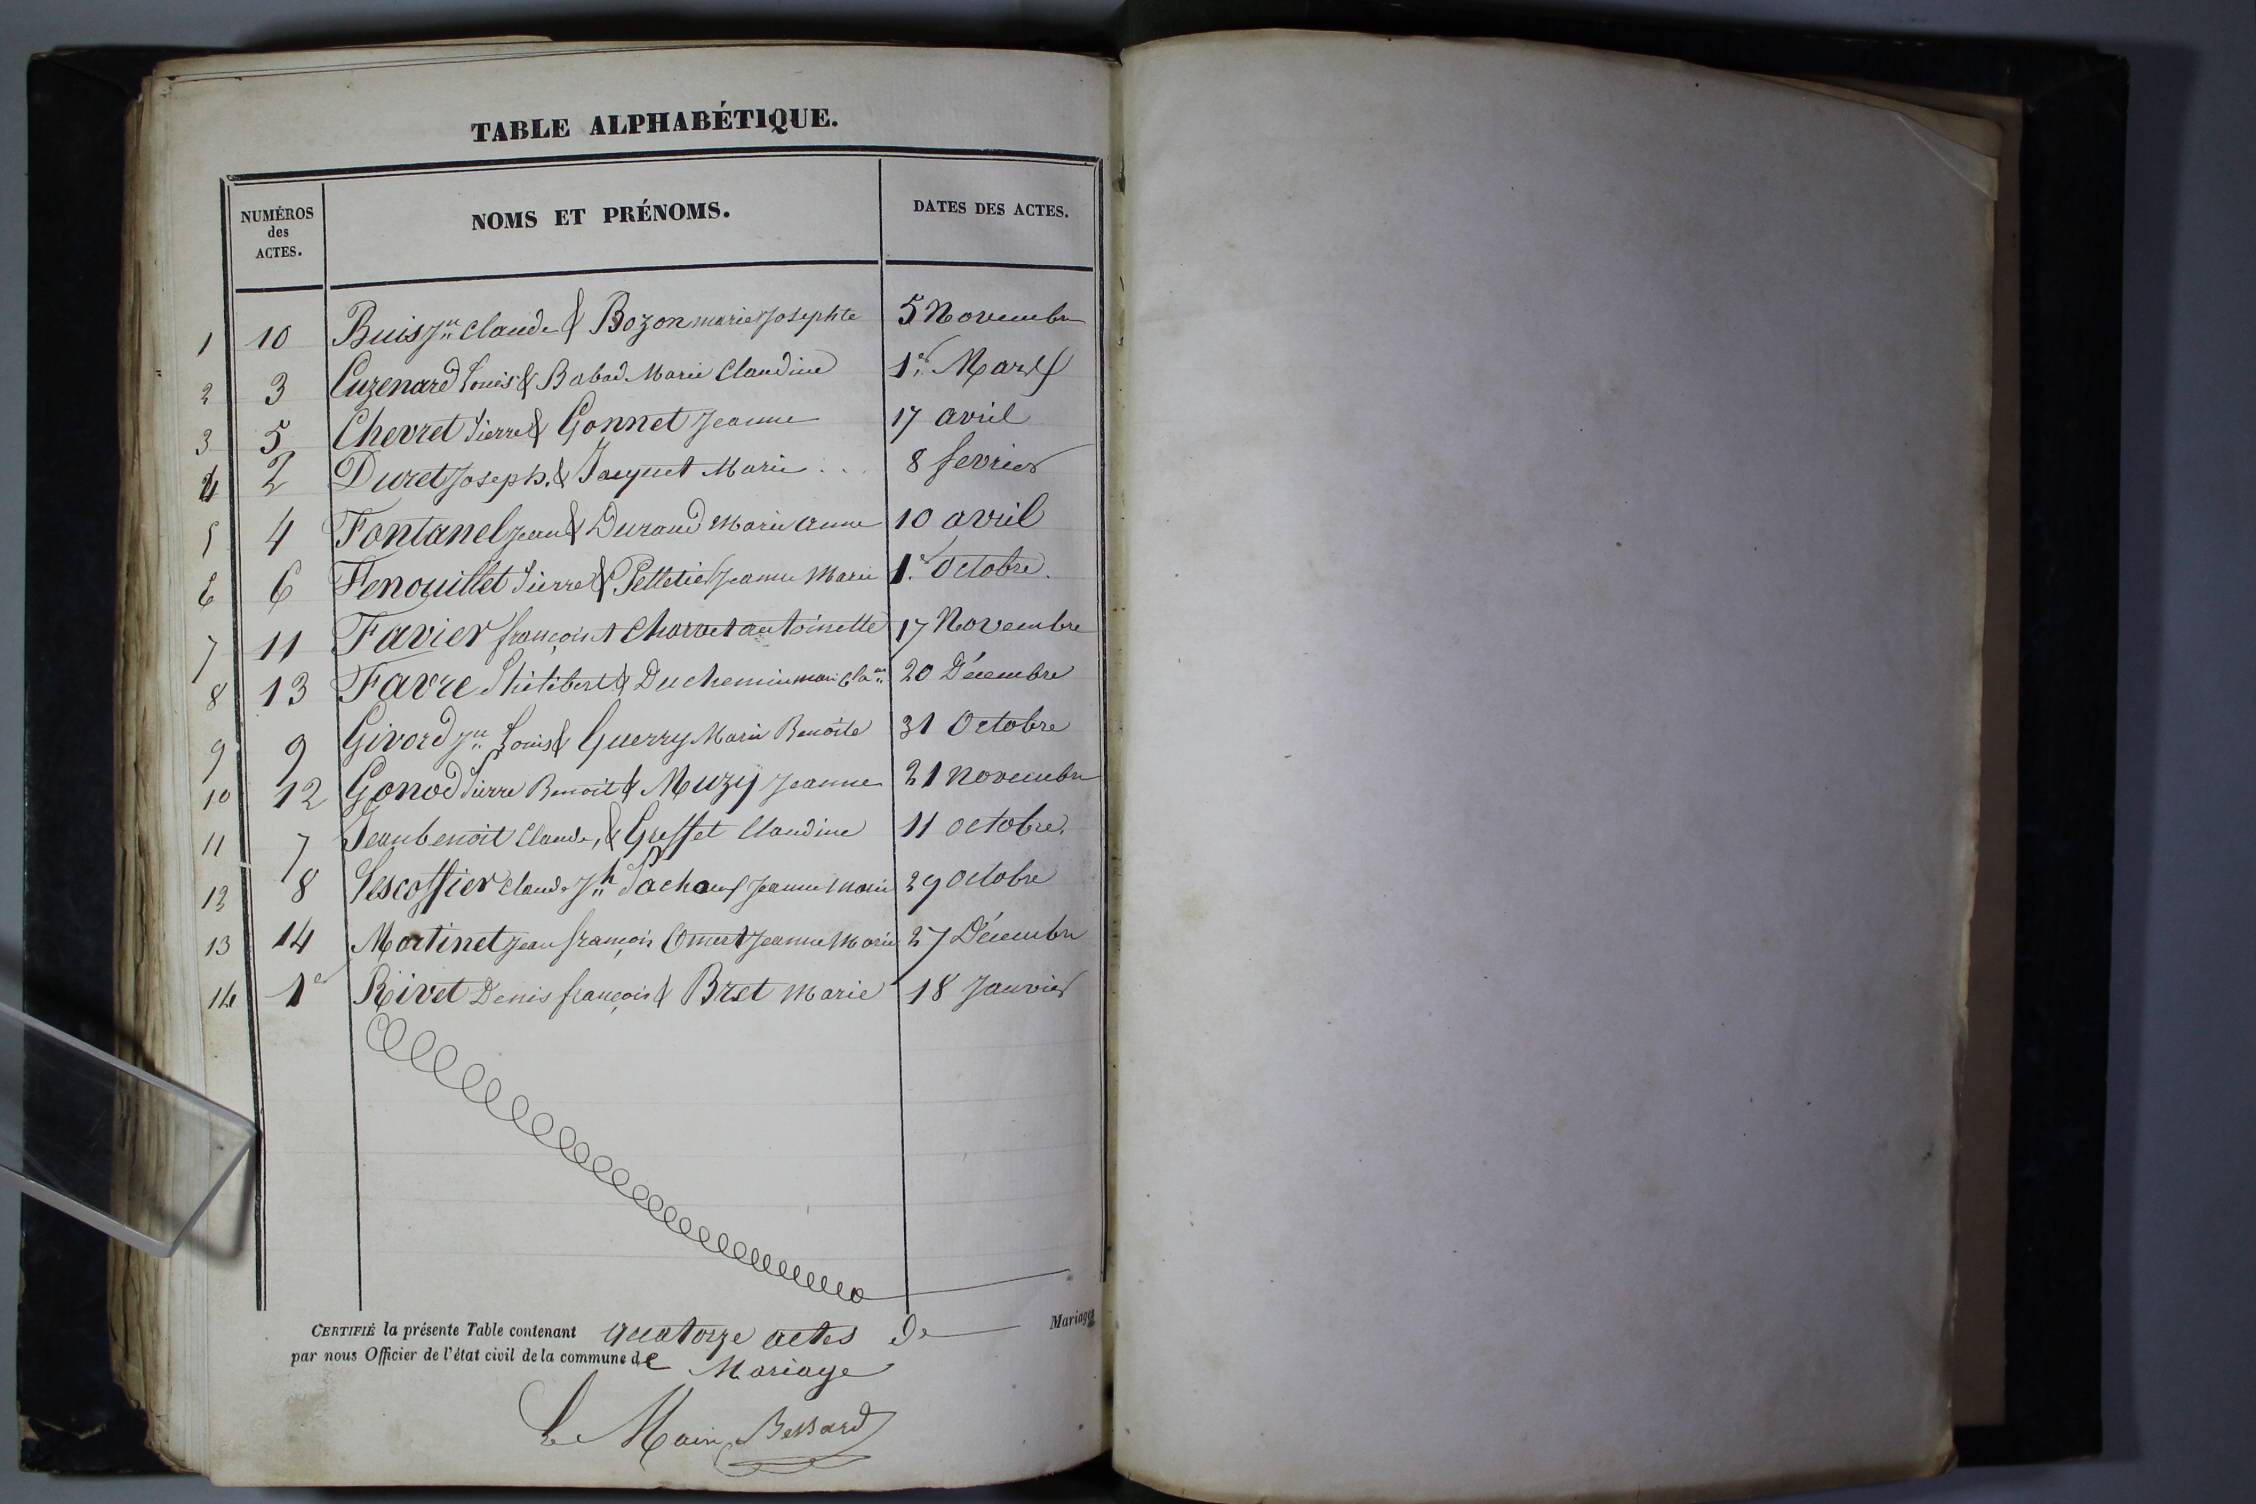 TABLE ALPHABÉTIQUE.
NUMÉROS des ACTES. NOMS ET PRÉNOMS. DATES DES ACTES.
1 10 Buis Jn Claude & Bozon marie Josephte 5 Novembre
2 3 Cuzenard Louis & Babad Marie Claudine 1er Mars
3 5 Chevret Pierre & Gonnet Jeanne 17 avril
4 2 Duret Joseph, & Jacquet Marie 8 fevrier
5 4 Fontanel Jean & Durand Marie anne 10 avril
6 6 Fenouillet Pierre & Pelletier Jeanne Marie 1er Octobre.
7 11 Favier françois & Charvet antoinette 17 Novembre
8 13 Favre Philibert & Duchemin marie Clane 20 Décembre
9 9 Givord Jn Louis & Guerry Marie Benoîte 31 Octobre
10 12 Gonod Pierre Benoit & Muzy Jeanne 21 novembre
11 7 Jeanbenoit Claude, & Greffet Claudine 11 octobre.
12 8 Lescoffier Claude Jh Jeanne marie 29 Octobre
13 14 Martinet Jean françois Jeanne Marie 27 Décembre
14 1er Rivet Denis françois & Bret Marie 18 Janvier
CERTIFIÉ la présente Table contenant quatorze actes de Mariages
par nous Officier de l'état civil de la commune de Mariage
Le Maire Bessard